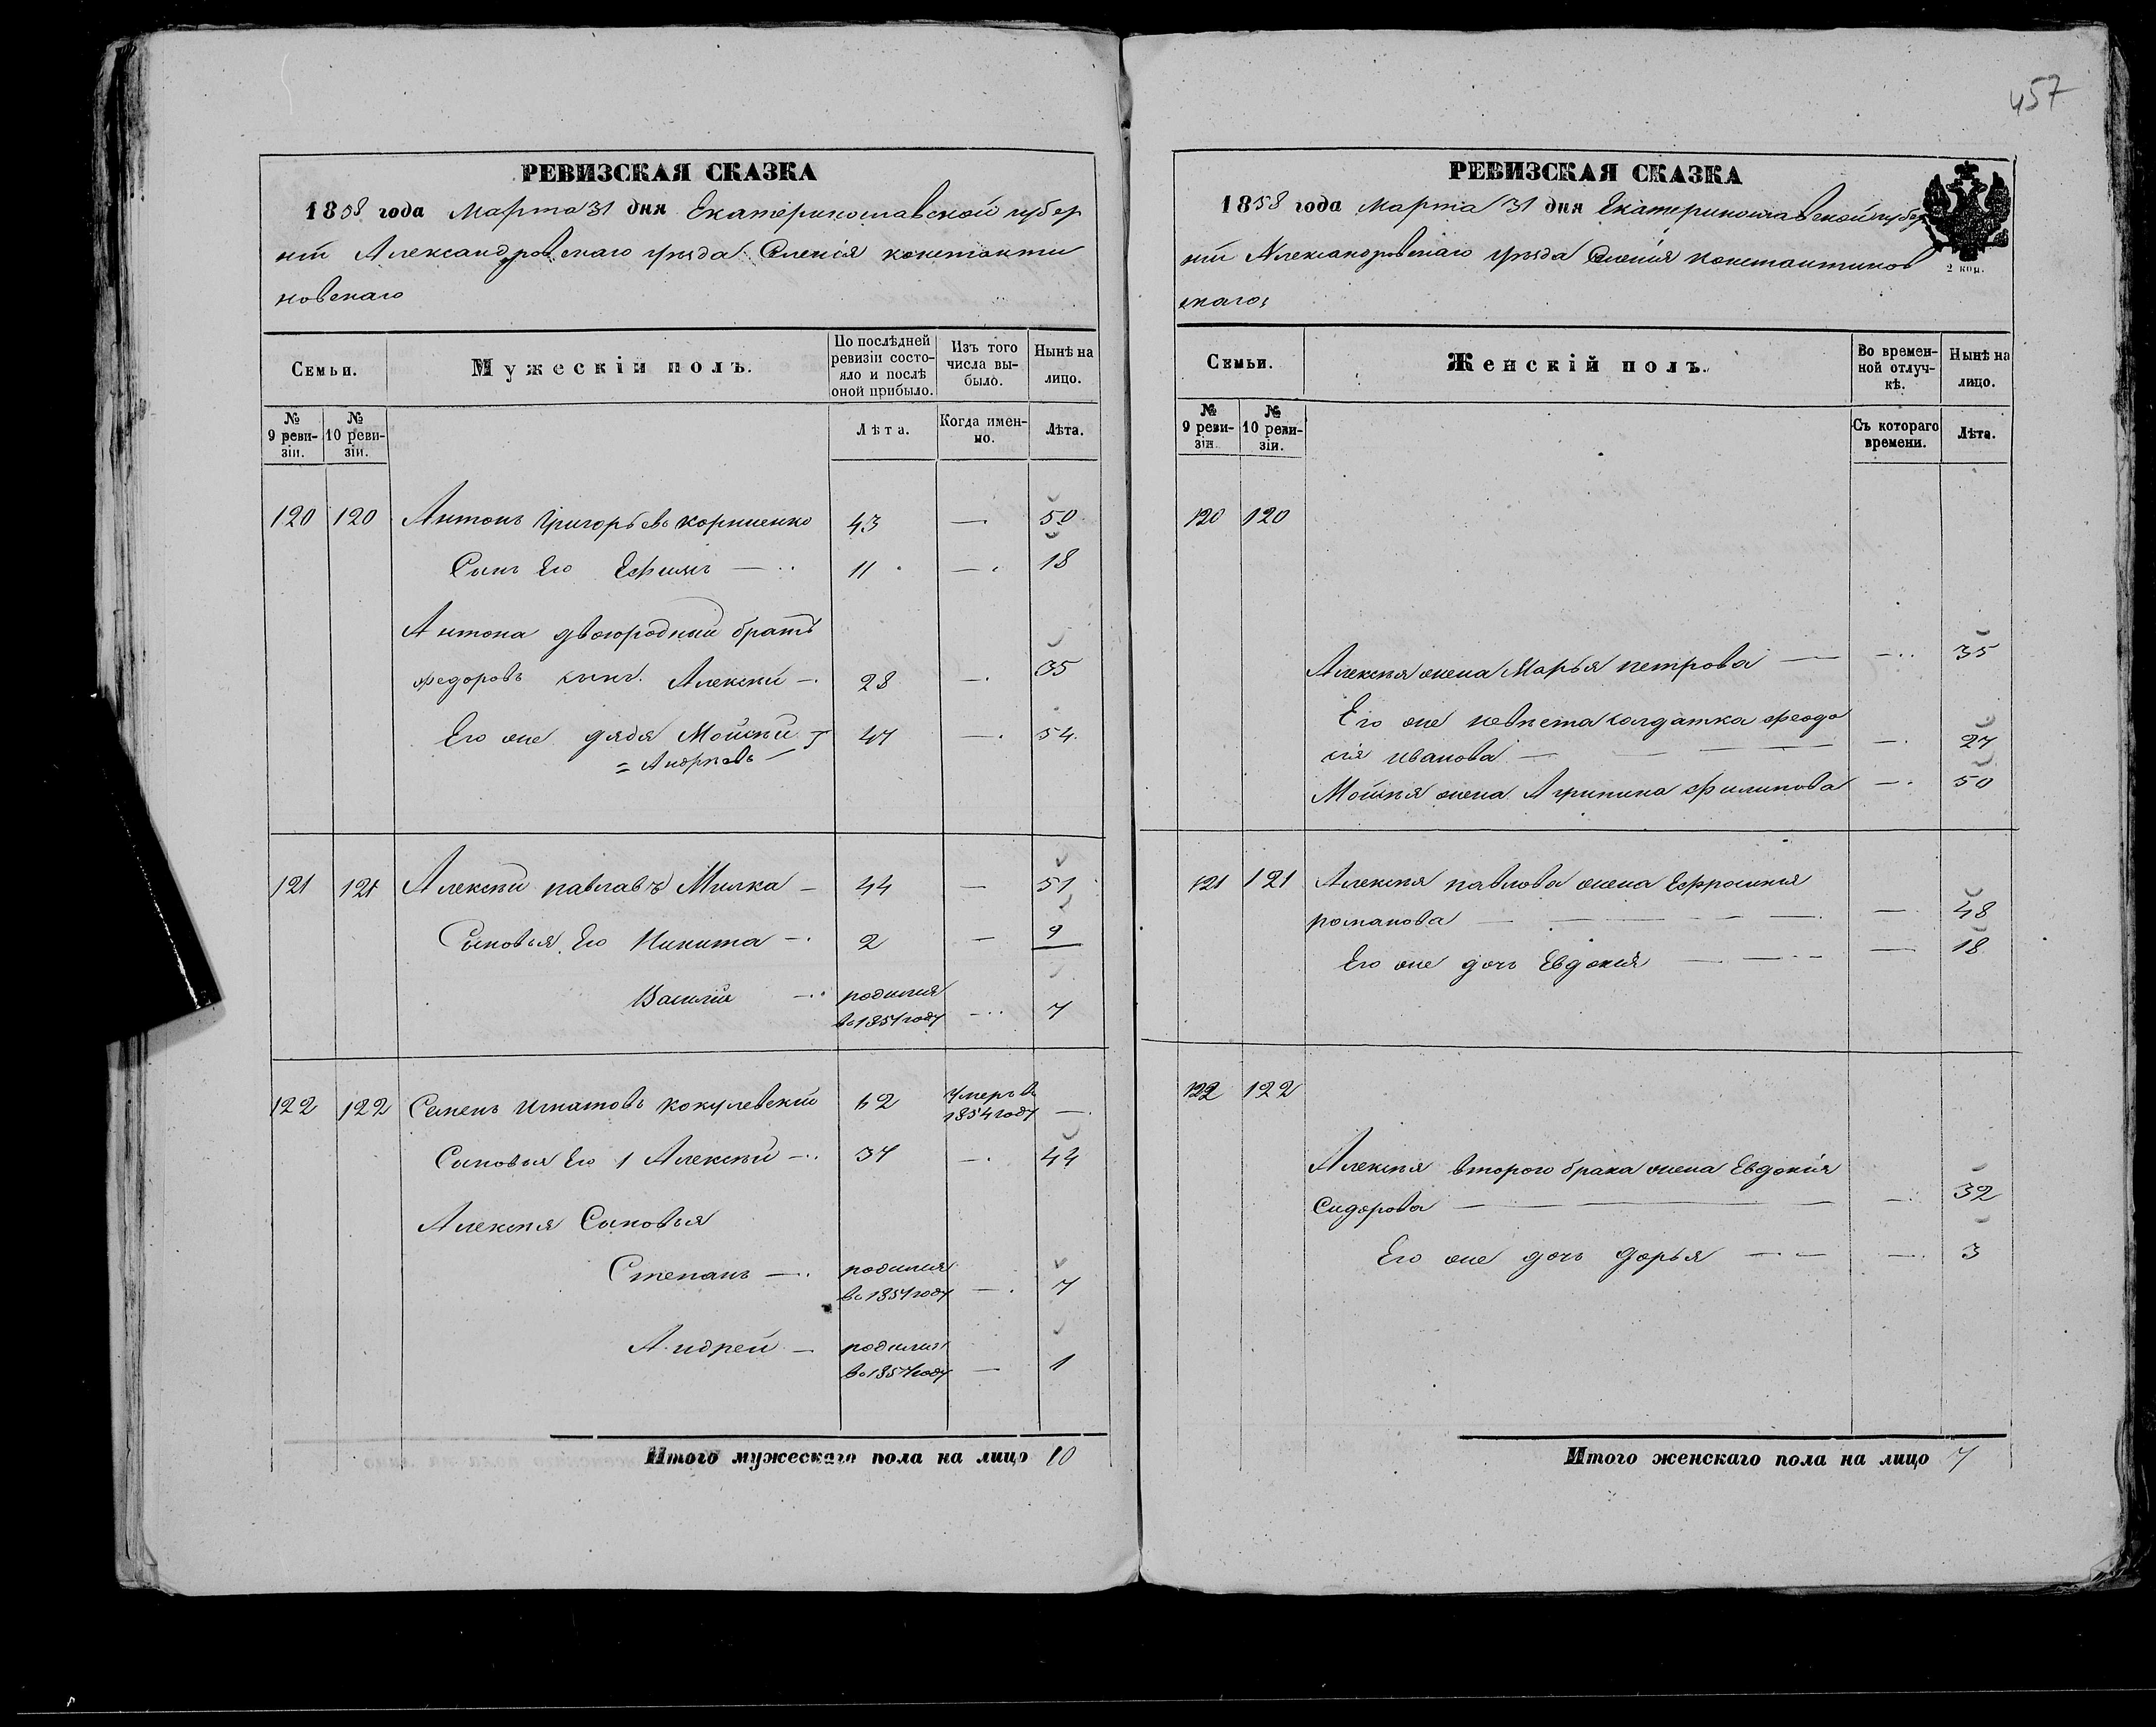 457
РЕВИЗСКАЯ СКАЗКА
1858 года Марта 31 дня Екатеринославской губер
нiи Александровскаго уезда Селенiя константи
новскаго
Семьи.
Мужескiй полъ.
По послѣдней ревизiи состо-яло и послѣ оной прибыло.
Изъ того числа вы-было.
Нынѣ на лицо.
№ 9 реви-зiи.
№ 10 реви-зiи.
Лѣта.
Когда имен-но.
Лѣта.
120 120 Антонъ Григорьевъ корниенко 43 — 50
Сынъ Его Ефимъ — 11 — 18
Антона двоюродный братъ
федоровъ сынъ Алексѣй — 28 — 35
Его же дядя Мойсѣй 47 — 54
= Андрѣевъ —
121 121 Алексѣй павлавъ Милка — 44 — 51
Сыновья Его Никита — 2 — 9
Василiй — родился
во 1851 году — 7
122 122 Семенъ Игнатовъ кокулевскiй 62 Умеръ в
1854 году —
Сыновья Его 1 Алексѣй — 37 — 44
Алексѣя Сыновья
Степанъ — родился
во 1851 году — 7
Андрей — родился
во 1857 году — 1
Итого мужескаго пола на лицо 10
РЕВИЗСКАЯ СКАЗКА
1858 года Марта 31 дня Екатеринославской губер
нiи Александровскаго уѣзда Селенiя константинов
скаго
2 коп.
Семьи.
Женскiй полъ.
Во времен-ной отлуч-кѣ.
Нынѣ на лицо.
№ 9 реви-зiи.
№ 10 реви-зiи.
Съ котораго времени.
Лѣта.
120 120
Алексѣя жена Марья петрова — — 35
Его же невѣста солдатка феодо
сiя иванова — — 27
Мойсѣя жена Агрипина филипова — 50
121 121 Алексѣя павлова жена Ефросинiя
романова — — 48
Его же дочь Евдокiя — — 18
122 122
Алексѣя втораго брака жена Евдокiя
Сидорова — — 32
Его же дочь дарья — — 3
Итого женскаго пола на лицо 7